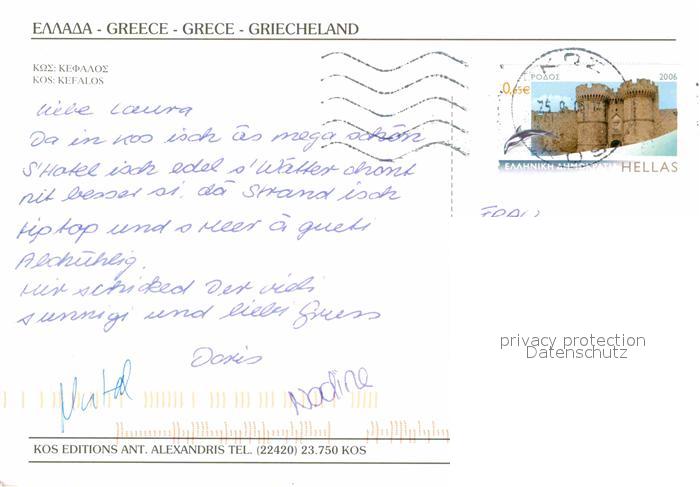 ΕΛΛΑΔΑ - GREECE - GRECE - GRIECHELAND
ΚΩΣ: ΚΕΦΑΛΟΣ
KOS: KEFALOS
Liebe Laura
Da in Kos isch äs mega schön
S'Hotel isch edel s'Wätter chönt
nit besser si. dä Strand isch
tip top und s Meer ä gueti
Abchühlig.
Mir schicked Der vieli
sunnigi und liebi Grüess
Doris
Nadine
ΡΟΔΟΣ 2006
0,65€
ΚΩΣ
ΕΛΛΗΝΙΚΗ ΔΗΜΟΚΡΑΤΙΑ HELLAS
privacy protection
Datenschutz
KOS EDITIONS ANT. ALEXANDRIS TEL. (22420) 23.750 KOS